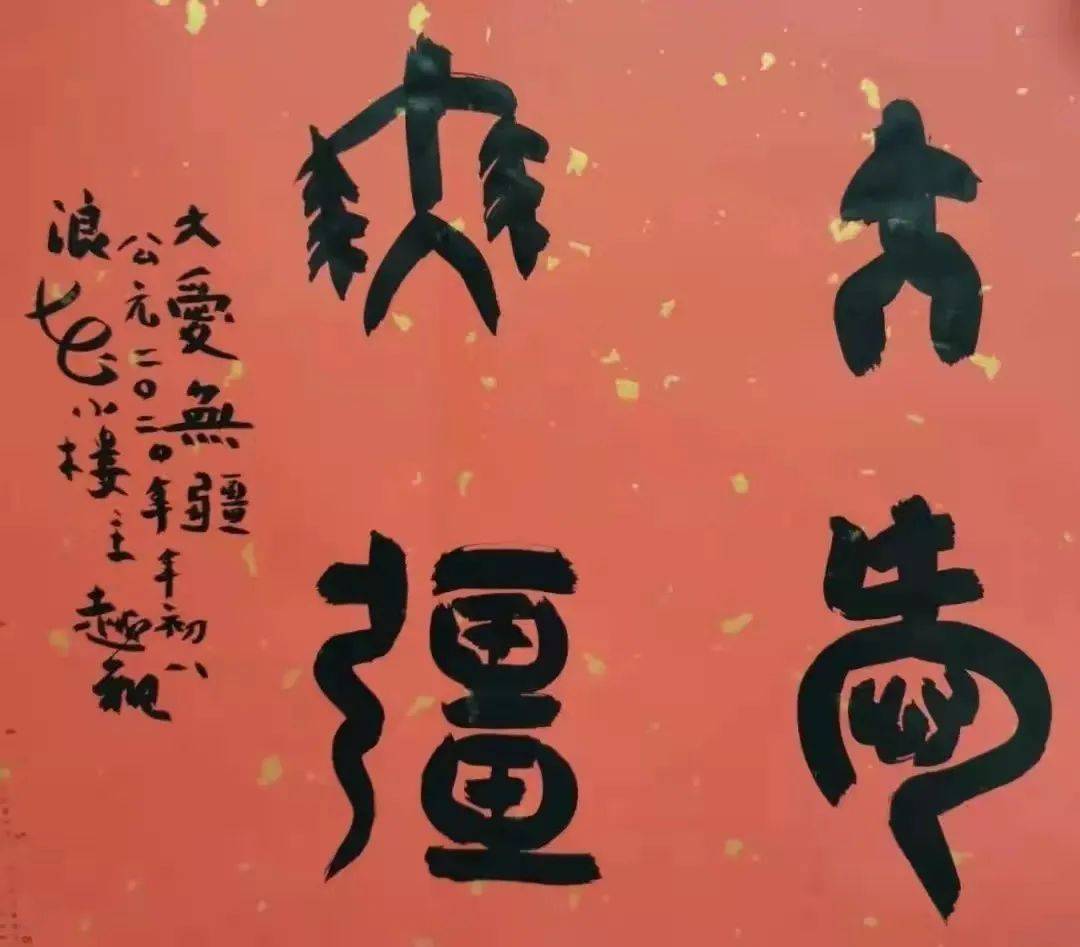 大愛
無疆
大愛無疆
公元二〇二〇年年初八
浪花小樓主